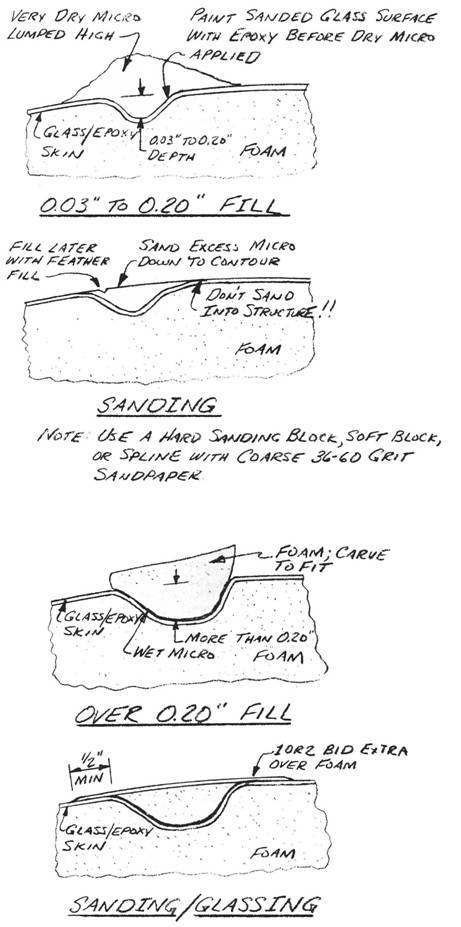 VERY DRY MICRO
LUMPED HIGH
PAINT SANDED GLASS SURFACE
WITH EPOXY BEFORE DRY MICRO
APPLIED
GLASS/EPOXY
SKIN
0.03" TO 0.20"
DEPTH
FOAM
0.03" TO 0.20" FILL
FILL LATER
WITH FEATHER
FILL
SAND EXCESS MICRO
DOWN TO CONTOUR
DON'T SAND
INTO STRUCTURE!!
FOAM
SANDING
NOTE: USE A HARD SANDING BLOCK, SOFT BLOCK,
OR SPLINE WITH COARSE 36-60 GRIT
SANDPAPER
FOAM; CARVE
TO FIT
GLASS/EPOXY
SKIN
WET MICRO
MORE THAN 0.20"
FOAM
OVER 0.20" FILL
1/2"
MIN
1 OR 2 BID EXTRA
OVER FOAM
GLASS/EPOXY
SKIN
FOAM
SANDING/GLASSING